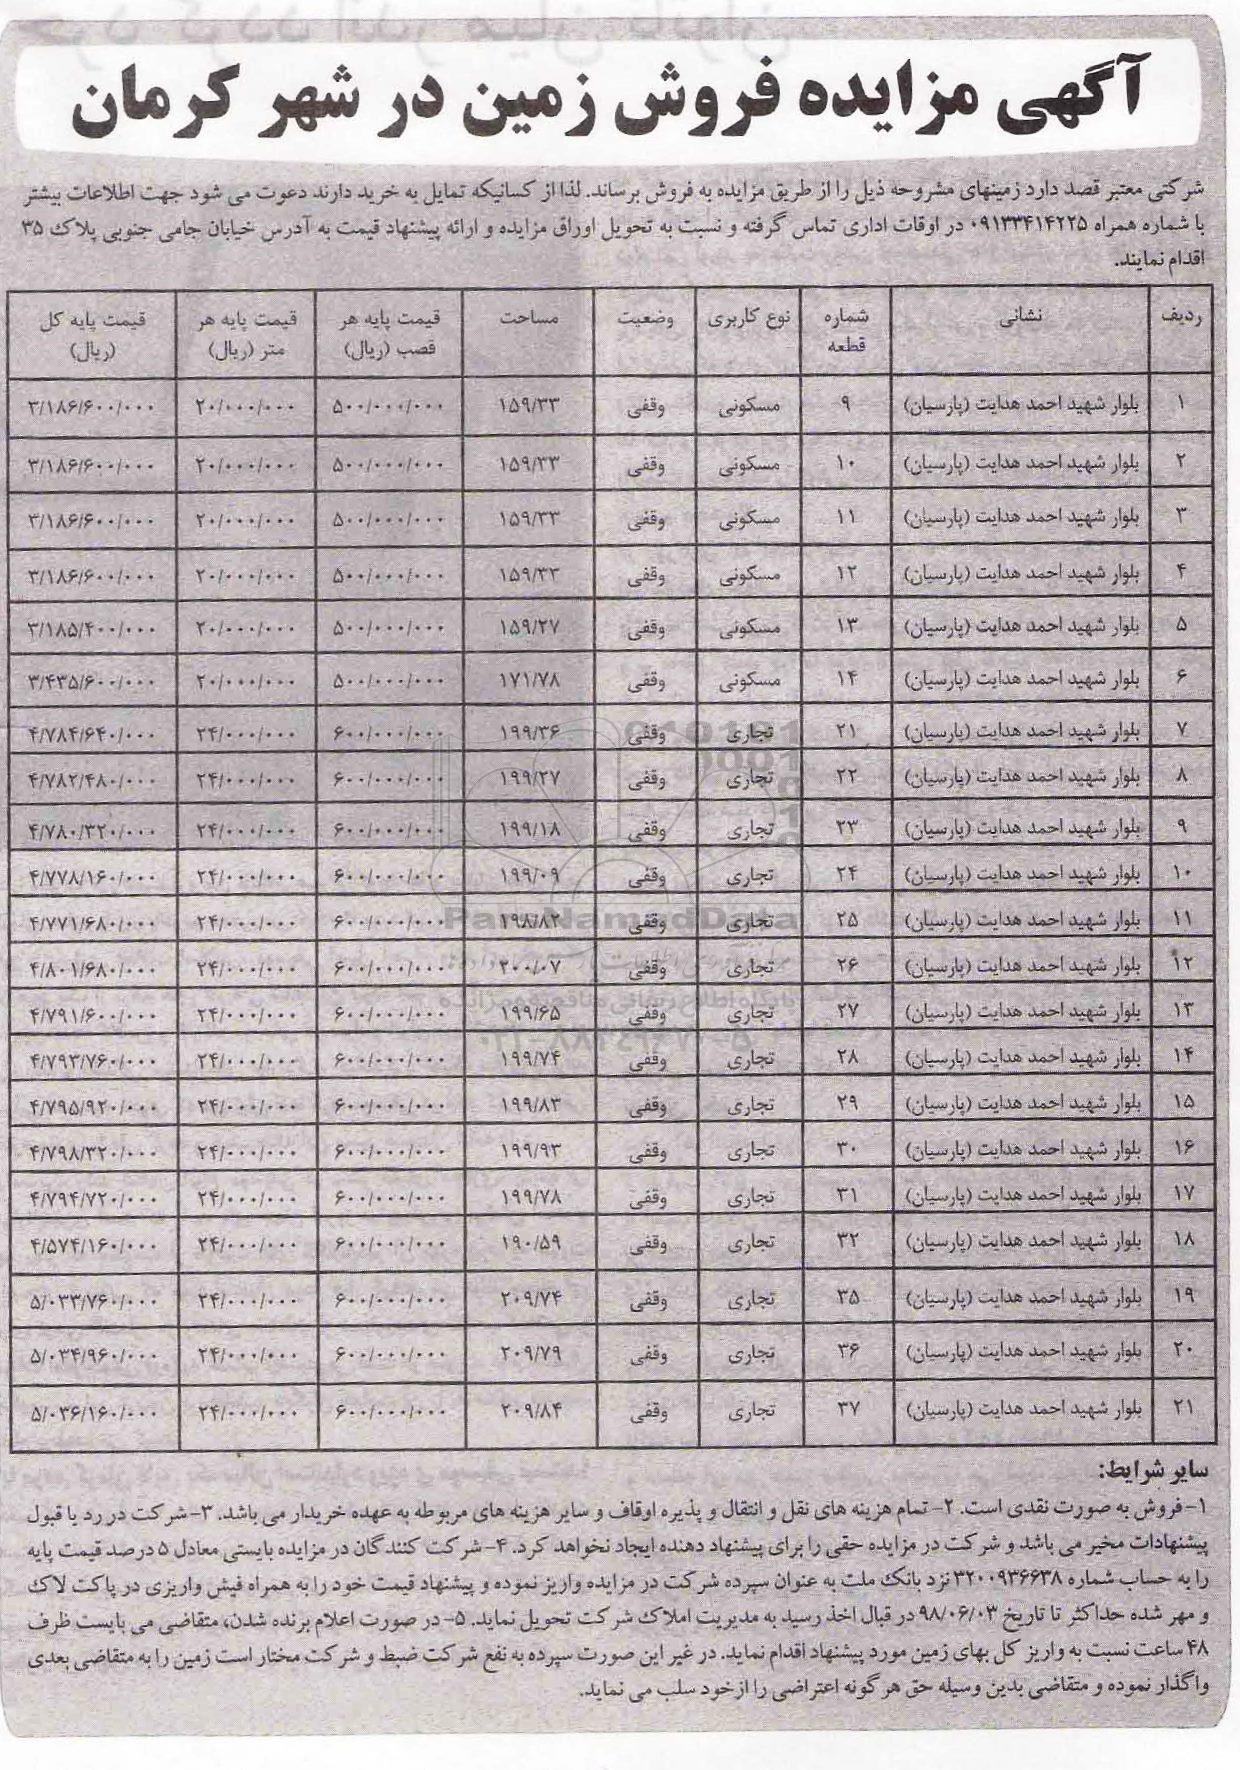 آگهی مزایده فروش زمین در شهر کرمان
شرکتی معتبر قصد دارد زمینهای مشروحه ذیل را از طریق مزایده به فروش برساند. لذا از کسانیکه تمایل به خرید دارند دعوت می شود جهت اطلاعات بیشتر
با شماره همراه ۰۹۱۳۳۴۱۴۲۲۵ در اوقات اداری تماس گرفته و نسبت به تحویل اوراق مزایده و ارائه پیشنهاد قیمت به آدرس خیابان جامی جنوبی پلاک ۳۵
اقدام نمایند.
ردیف نشانی شماره قطعه نوع کاربری وضعیت مساحت قیمت پایه هر قصب (ریال) قیمت پایه هر متر (ریال) قیمت پایه کل (ریال)
۱ بلوار شهید احمد هدایت (پارسیان) ۹ مسکونی وقفی ۱۵۹/۳۳ ۵۰۰/۰۰۰/۰۰۰ ۲۰/۰۰۰/۰۰۰ ۳/۱۸۶/۶۰۰/۰۰۰
۲ بلوار شهید احمد هدایت (پارسیان) ۱۰ مسکونی وقفی ۱۵۹/۳۳ ۵۰۰/۰۰۰/۰۰۰ ۲۰/۰۰۰/۰۰۰ ۳/۱۸۶/۶۰۰/۰۰۰
۳ بلوار شهید احمد هدایت (پارسیان) ۱۱ مسکونی وقفی ۱۵۹/۳۳ ۵۰۰/۰۰۰/۰۰۰ ۲۰/۰۰۰/۰۰۰ ۳/۱۸۶/۶۰۰/۰۰۰
۴ بلوار شهید احمد هدایت (پارسیان) ۱۲ مسکونی وقفی ۱۵۹/۳۳ ۵۰۰/۰۰۰/۰۰۰ ۲۰/۰۰۰/۰۰۰ ۳/۱۸۶/۶۰۰/۰۰۰
۵ بلوار شهید احمد هدایت (پارسیان) ۱۳ مسکونی وقفی ۱۵۹/۲۷ ۵۰۰/۰۰۰/۰۰۰ ۲۰/۰۰۰/۰۰۰ ۳/۱۸۵/۴۰۰/۰۰۰
۶ بلوار شهید احمد هدایت (پارسیان) ۱۴ مسکونی وقفی ۱۷۱/۷۸ ۵۰۰/۰۰۰/۰۰۰ ۲۰/۰۰۰/۰۰۰ ۳/۴۳۵/۶۰۰/۰۰۰
۷ بلوار شهید احمد هدایت (پارسیان) ۲۱ تجاری وقفی ۱۹۹/۳۶ ۶۰۰/۰۰۰/۰۰۰ ۲۴/۰۰۰/۰۰۰ ۴/۷۸۴/۶۴۰/۰۰۰
۸ بلوار شهید احمد هدایت (پارسیان) ۲۲ تجاری وقفی ۱۹۹/۲۷ ۶۰۰/۰۰۰/۰۰۰ ۲۴/۰۰۰/۰۰۰ ۴/۷۸۲/۴۸۰/۰۰۰
۹ بلوار شهید احمد هدایت (پارسیان) ۲۳ تجاری وقفی ۱۹۹/۱۸ ۶۰۰/۰۰۰/۰۰۰ ۲۴/۰۰۰/۰۰۰ ۴/۷۸۰/۳۲۰/۰۰۰
۱۰ بلوار شهید احمد هدایت (پارسیان) ۲۴ تجاری وقفی ۱۹۹/۰۹ ۶۰۰/۰۰۰/۰۰۰ ۲۴/۰۰۰/۰۰۰ ۴/۷۷۸/۱۶۰/۰۰۰
۱۱ بلوار شهید احمد هدایت (پارسیان) ۲۵ تجاری وقفی ۱۹۸/۸۲ ۶۰۰/۰۰۰/۰۰۰ ۲۴/۰۰۰/۰۰۰ ۴/۷۷۱/۶۸۰/۰۰۰
۱۲ بلوار شهید احمد هدایت (پارسیان) ۲۶ تجاری وقفی ۲۰۰/۰۷ ۶۰۰/۰۰۰/۰۰۰ ۲۴/۰۰۰/۰۰۰ ۴/۸۰۱/۶۸۰/۰۰۰
۱۳ بلوار شهید احمد هدایت (پارسیان) ۲۷ تجاری وقفی ۱۹۹/۶۵ ۶۰۰/۰۰۰/۰۰۰ ۲۴/۰۰۰/۰۰۰ ۴/۷۹۱/۶۰۰/۰۰۰
۱۴ بلوار شهید احمد هدایت (پارسیان) ۲۸ تجاری وقفی ۱۹۹/۷۴ ۶۰۰/۰۰۰/۰۰۰ ۲۴/۰۰۰/۰۰۰ ۴/۷۹۳/۷۶۰/۰۰۰
۱۵ بلوار شهید احمد هدایت (پارسیان) ۲۹ تجاری وقفی ۱۹۹/۸۳ ۶۰۰/۰۰۰/۰۰۰ ۲۴/۰۰۰/۰۰۰ ۴/۷۹۵/۹۲۰/۰۰۰
۱۶ بلوار شهید احمد هدایت (پارسیان) ۳۰ تجاری وقفی ۱۹۹/۹۳ ۶۰۰/۰۰۰/۰۰۰ ۲۴/۰۰۰/۰۰۰ ۴/۷۹۸/۳۲۰/۰۰۰
۱۷ بلوار شهید احمد هدایت (پارسیان) ۳۱ تجاری وقفی ۱۹۹/۷۸ ۶۰۰/۰۰۰/۰۰۰ ۲۴/۰۰۰/۰۰۰ ۴/۷۹۴/۷۲۰/۰۰۰
۱۸ بلوار شهید احمد هدایت (پارسیان) ۳۲ تجاری وقفی ۱۹۰/۵۹ ۶۰۰/۰۰۰/۰۰۰ ۲۴/۰۰۰/۰۰۰ ۴/۵۷۴/۱۶۰/۰۰۰
۱۹ بلوار شهید احمد هدایت (پارسیان) ۳۵ تجاری وقفی ۲۰۹/۷۴ ۶۰۰/۰۰۰/۰۰۰ ۲۴/۰۰۰/۰۰۰ ۵/۰۳۳/۷۶۰/۰۰۰
۲۰ بلوار شهید احمد هدایت (پارسیان) ۳۶ تجاری وقفی ۲۰۹/۷۹ ۶۰۰/۰۰۰/۰۰۰ ۲۴/۰۰۰/۰۰۰ ۵/۰۳۴/۹۶۰/۰۰۰
۲۱ بلوار شهید احمد هدایت (پارسیان) ۳۷ تجاری وقفی ۲۰۹/۸۴ ۶۰۰/۰۰۰/۰۰۰ ۲۴/۰۰۰/۰۰۰ ۵/۰۳۶/۱۶۰/۰۰۰
ParsNamadData
سایر شرایط:
۱-فروش به صورت نقدی است. ۲- تمام هزینه های نقل و انتقال و پذیره اوقاف و سایر هزینه های مربوطه به عهده خریدار می باشد. ۳-شرکت در رد یا قبول
پیشنهادات مخیر می باشد و شرکت در مزایده حقی را برای پیشنهاد دهنده ایجاد نخواهد کرد. ۴-شرکت کنندگان در مزایده بایستی معادل ۵ درصد قیمت پایه
را به حساب شماره ۳۲۰۰۹۳۶۶۳۸ نزد بانک ملت به عنوان سپرده شرکت در مزایده واریز نموده و پیشنهاد قیمت خود را به همراه فیش واریزی در پاکت لاک
و مهر شده حداکثر تا تاریخ ۹۸/۰۶/۰۳ در قبال اخذ رسید به مدیریت املاک شرکت تحویل نماید. ۵- در صورت اعلام برنده شدن، متقاضی می بایست ظرف
۴۸ ساعت نسبت به واریز کل بهای زمین مورد پیشنهاد اقدام نماید. در غیر این صورت سپرده به نفع شرکت ضبط و شرکت مختار است زمین را به متقاضی بعدی
واگذار نموده و متقاضی بدین وسیله حق هرگونه اعتراضی را از خود سلب می نماید.